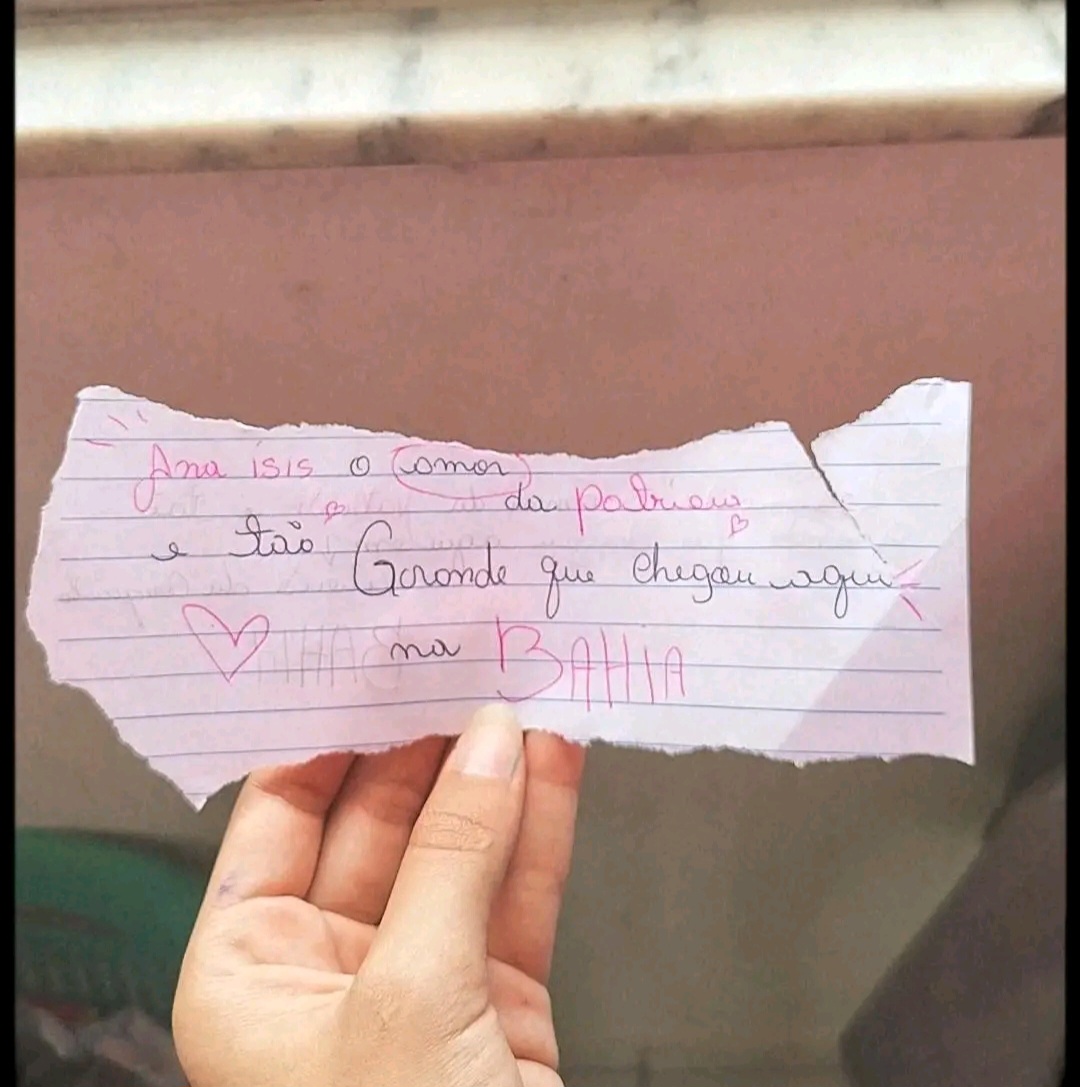 Ana isis o amor
da patricia
e tão Grande que chegou aqui
na BAHIA